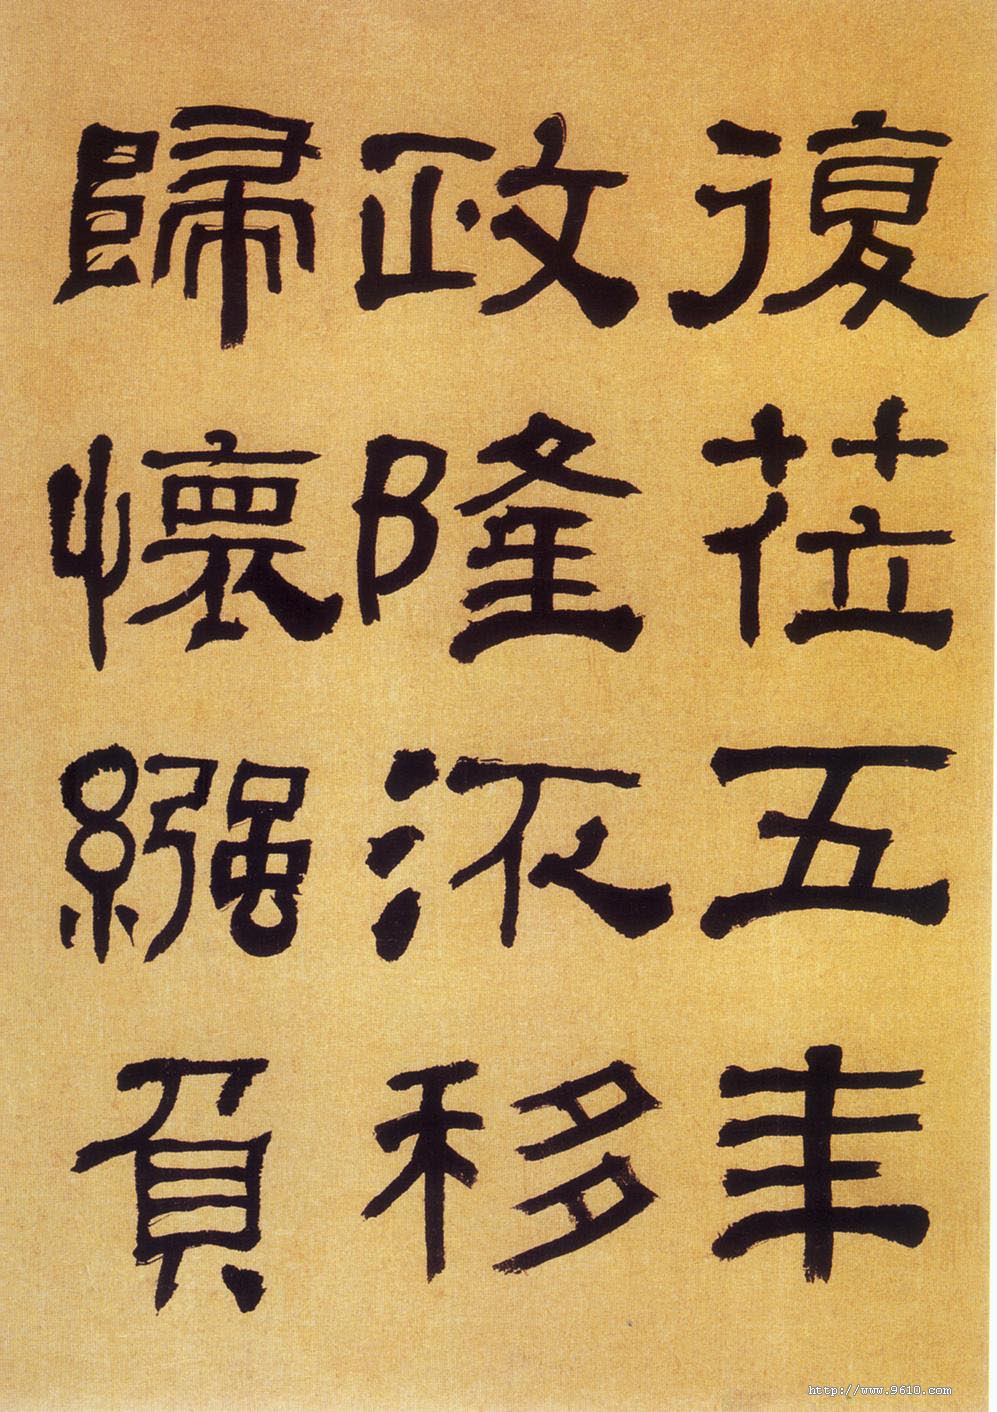 復莅五年
政隆㳅移
歸懷繈負
http://www.9610.com